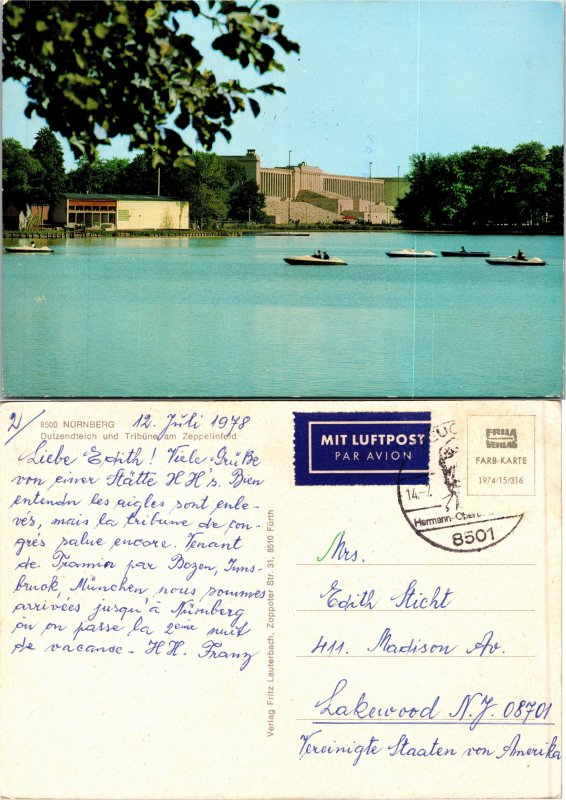 2/
8500 NÜRNBERG 12. Juli 1978
Dutzendteich und Tribüne am Zeppelinfeld
Liebe Edith! Viele Grüße
von einer Stätte HH s. Bien
entendn les aigles sont enle-
vés, mais la tribune de con-
grés salue encore. Venant
de Tramin par Bozen, Inns-
bruck, München nous sommes
arrivées jusqu'à Nürnberg
on on passe la 2ème nuit
de vacance - HH. Franz
Verlag Fritz Lauterbach, Zoppoter Str. 31, 8510 Fürth
MIT LUFTPOST
PAR AVION
14.-7.
Hermann-Obert
8501
FRILA
VERLAG
FARB-KARTE
1974/15/316
Mrs.
Edith Sticht
411. Madison Av.
Lakewood N.J. 08701
Vereinigte Staaten von Amerika